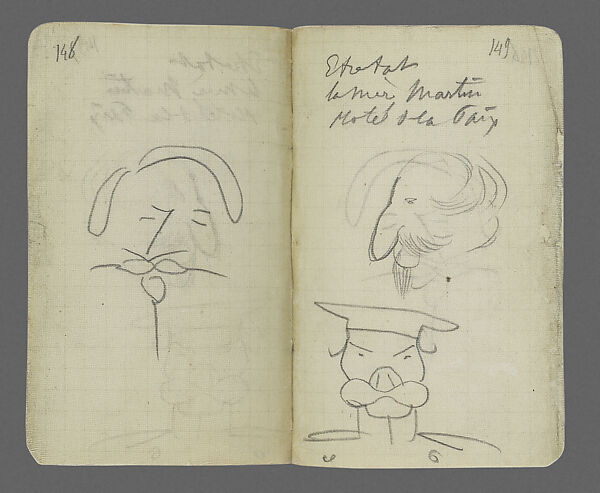 148
149
Etretat
la mere Martin
Hotel de la Paix